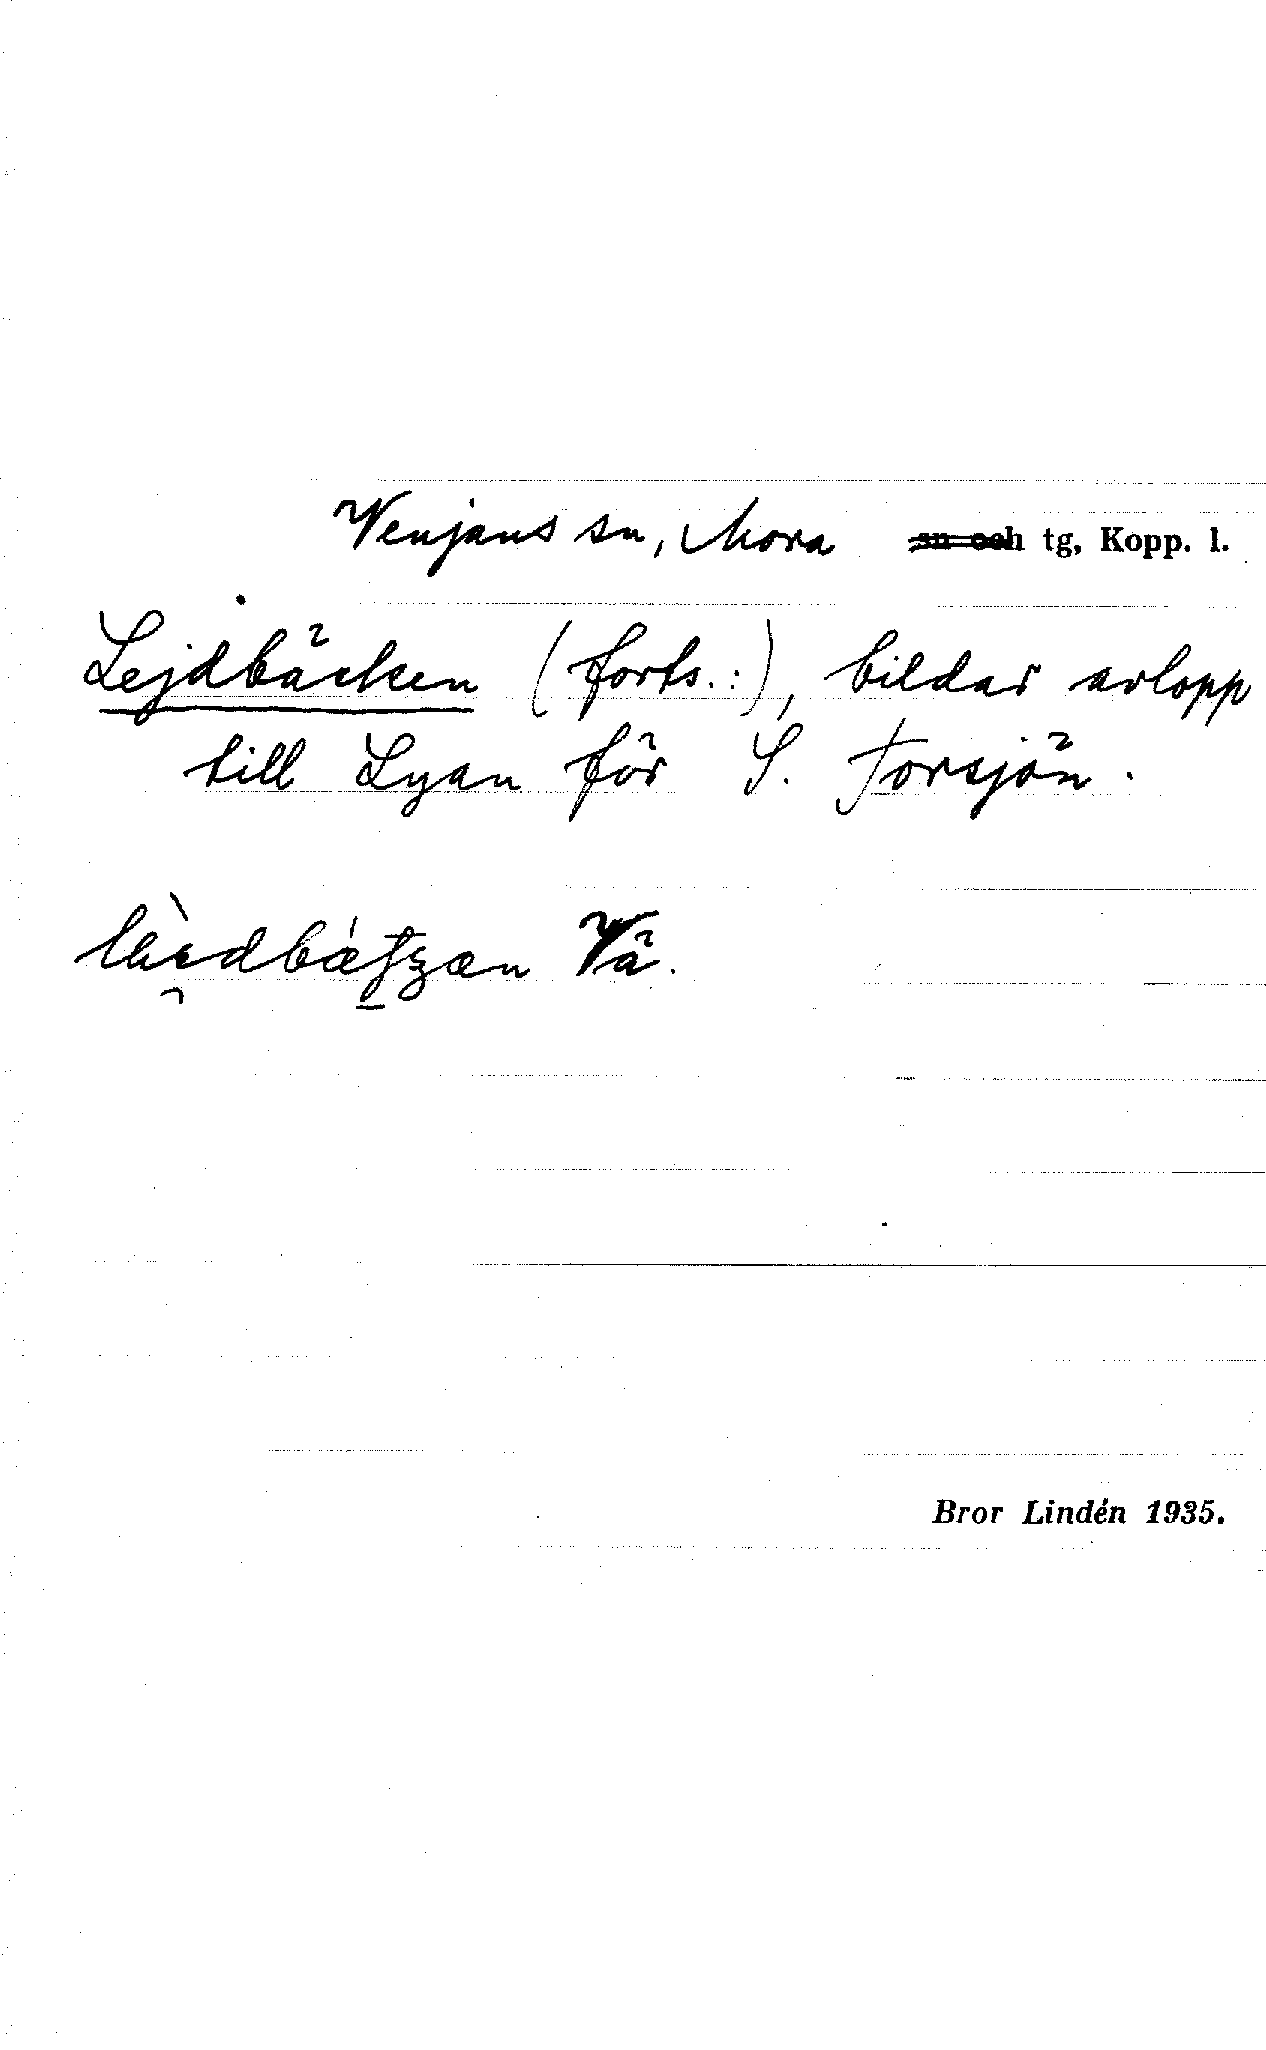 Venjans sn, Mora sn och tg, Kopp. l.
Lejdbäcken (forts.:), bildar avlopp
till Lyan för S. Torsjön.
Vä.
Bror Lindén 1935.